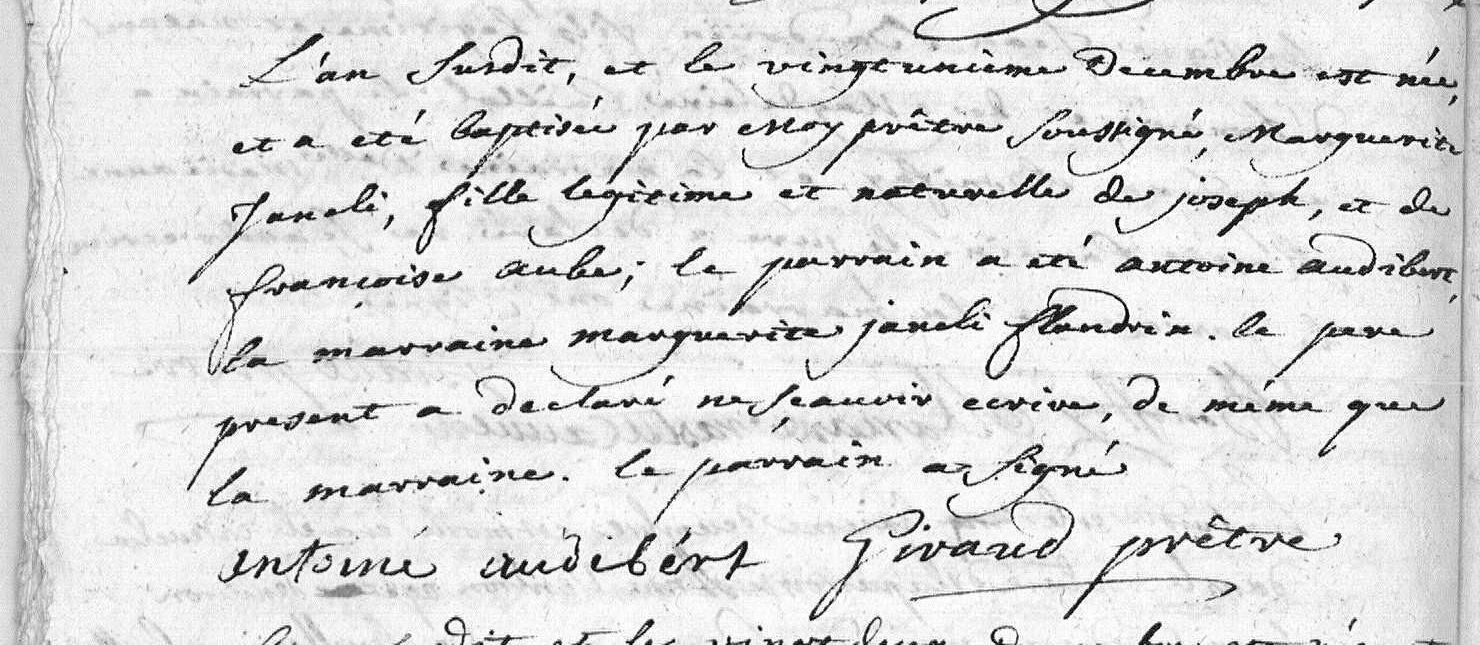 L'an susdit, et le vingtunieme Decembre est née,
et a eté baptisée par Moy prêtre soussigné, Marguerite
Janeli, fille legitime et naturelle de joseph, et de
françoise aube; le parrain a eté antoine audibert,
la marraine marguerite janeli flandrin. le pere
present a declaré ne sçauvir ecrire, de même que
la marraine. le parrain a signé
antoiné audibért Giraud prêtre
dit et le vingt deux